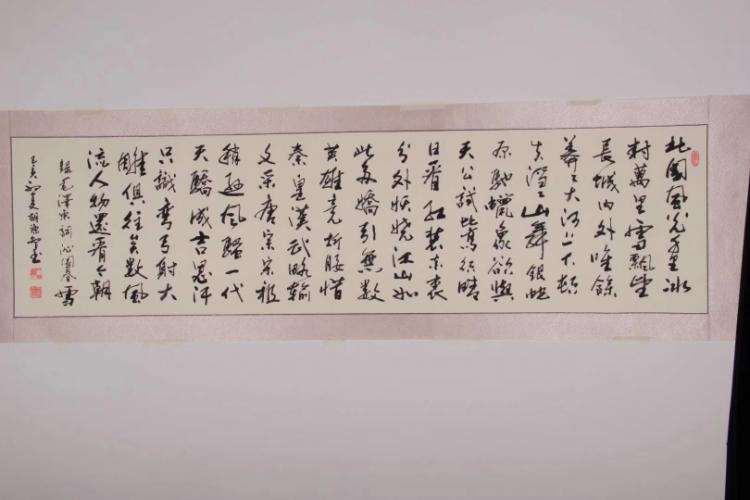 北國風光千里冰
封萬里雪飄望
長城内外唯餘
莽々大河上下頓
失滔々山舞銀蛇
原馳蠟象欲與
天公試比高須晴
日看紅裝素裹
分外妖嬈江山如
此多嬌引無數
英雄竞折腰惜
秦皇漢武略輸
文采唐宗宋祖
稍遜風騷一代
天驕成吉思汗
只識彎弓射大
雕俱往矣數風
流人物還看今朝
錄毛澤東詞沁園春雪
書